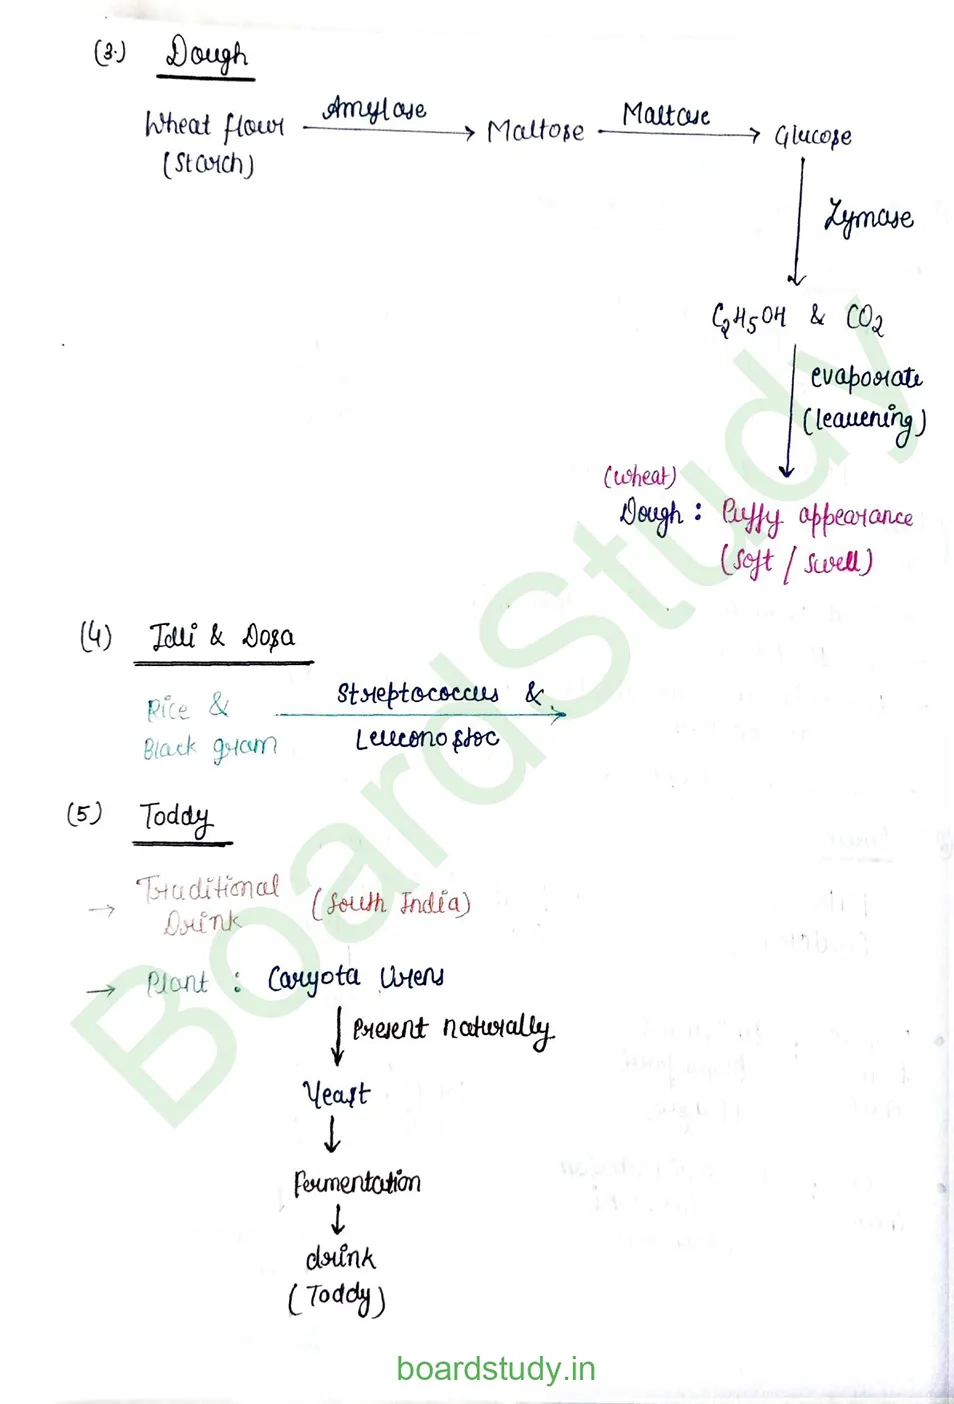 (3.) Dough
Amylase Maltase
Wheat flour → Maltose → Glucose
(Starch)
Zymase
C2H5OH & CO2
evaporate
(leavening)
(Wheat)
Dough : Puffy appearance
(Soft / Swell)
(4) Idli & Dosa
Rice & Streptococcus &
Black gram Leuconostoc
(5) Toddy
→ Traditional (South India)
Drink
→ Plant : Caryota Urens
↓ Present naturally
Yeast
↓
Fermentation
↓
drink
(Toddy)
BoardStudy
boardstudy.in